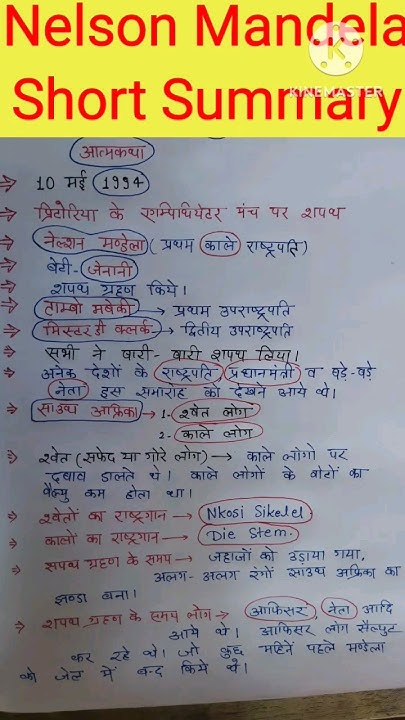 Nelson Mandela
Short Summary
KINEMASTER
आत्मकथा
⇒ 10 मई 1994
⇒ प्रिटोरिया के एम्पिथियेटर मंच पर शपथ
⇒ नेल्शन मण्डेला (प्रथम काले राष्ट्रपति)
⇒ बेटी- जेनानी
⇒ शपथ ग्रहण किये।
⇒ ताम्बो मबेकी → प्रथम उपराष्ट्रपति
⇒ मिस्टर डी क्लर्क → द्वितीय उपराष्ट्रपति
सभी ने बारी-बारी शपथ लिया।
⇒ अनेक देशों के राष्ट्रपति, प्रधानमंत्री व बड़े-बड़े
नेता इस समारोह को देखने आये थे।
⇒ साउथ आफ्रिका → 1- श्वेत लोग
2- काले लोग
⇒ श्वेत (सफेद या गोरे लोग) → काले लोगो पर
दबाव डालते थे। काले लोगों के वोटों का
वैल्यु कम होता था।
⇒ श्वेतों का राष्ट्रगान → Nkosi Sikelel.
⇒ कालों का राष्ट्रगान → Die Stem.
⇒ सपथ ग्रहण के समय → जहाजों को उड़ाया गया,
अलग-अलग रंगों साउथ अफ्रिका का
झण्डा बना।
⇒ शपथ ग्रहण के समय लोग → आफिसर, नेता आदि
आये थे। आफिसर लोग सैल्युट
कर रहे थे। जो कुछ महिनें पहले मण्डेला
को जेल में बन्द किये थे।